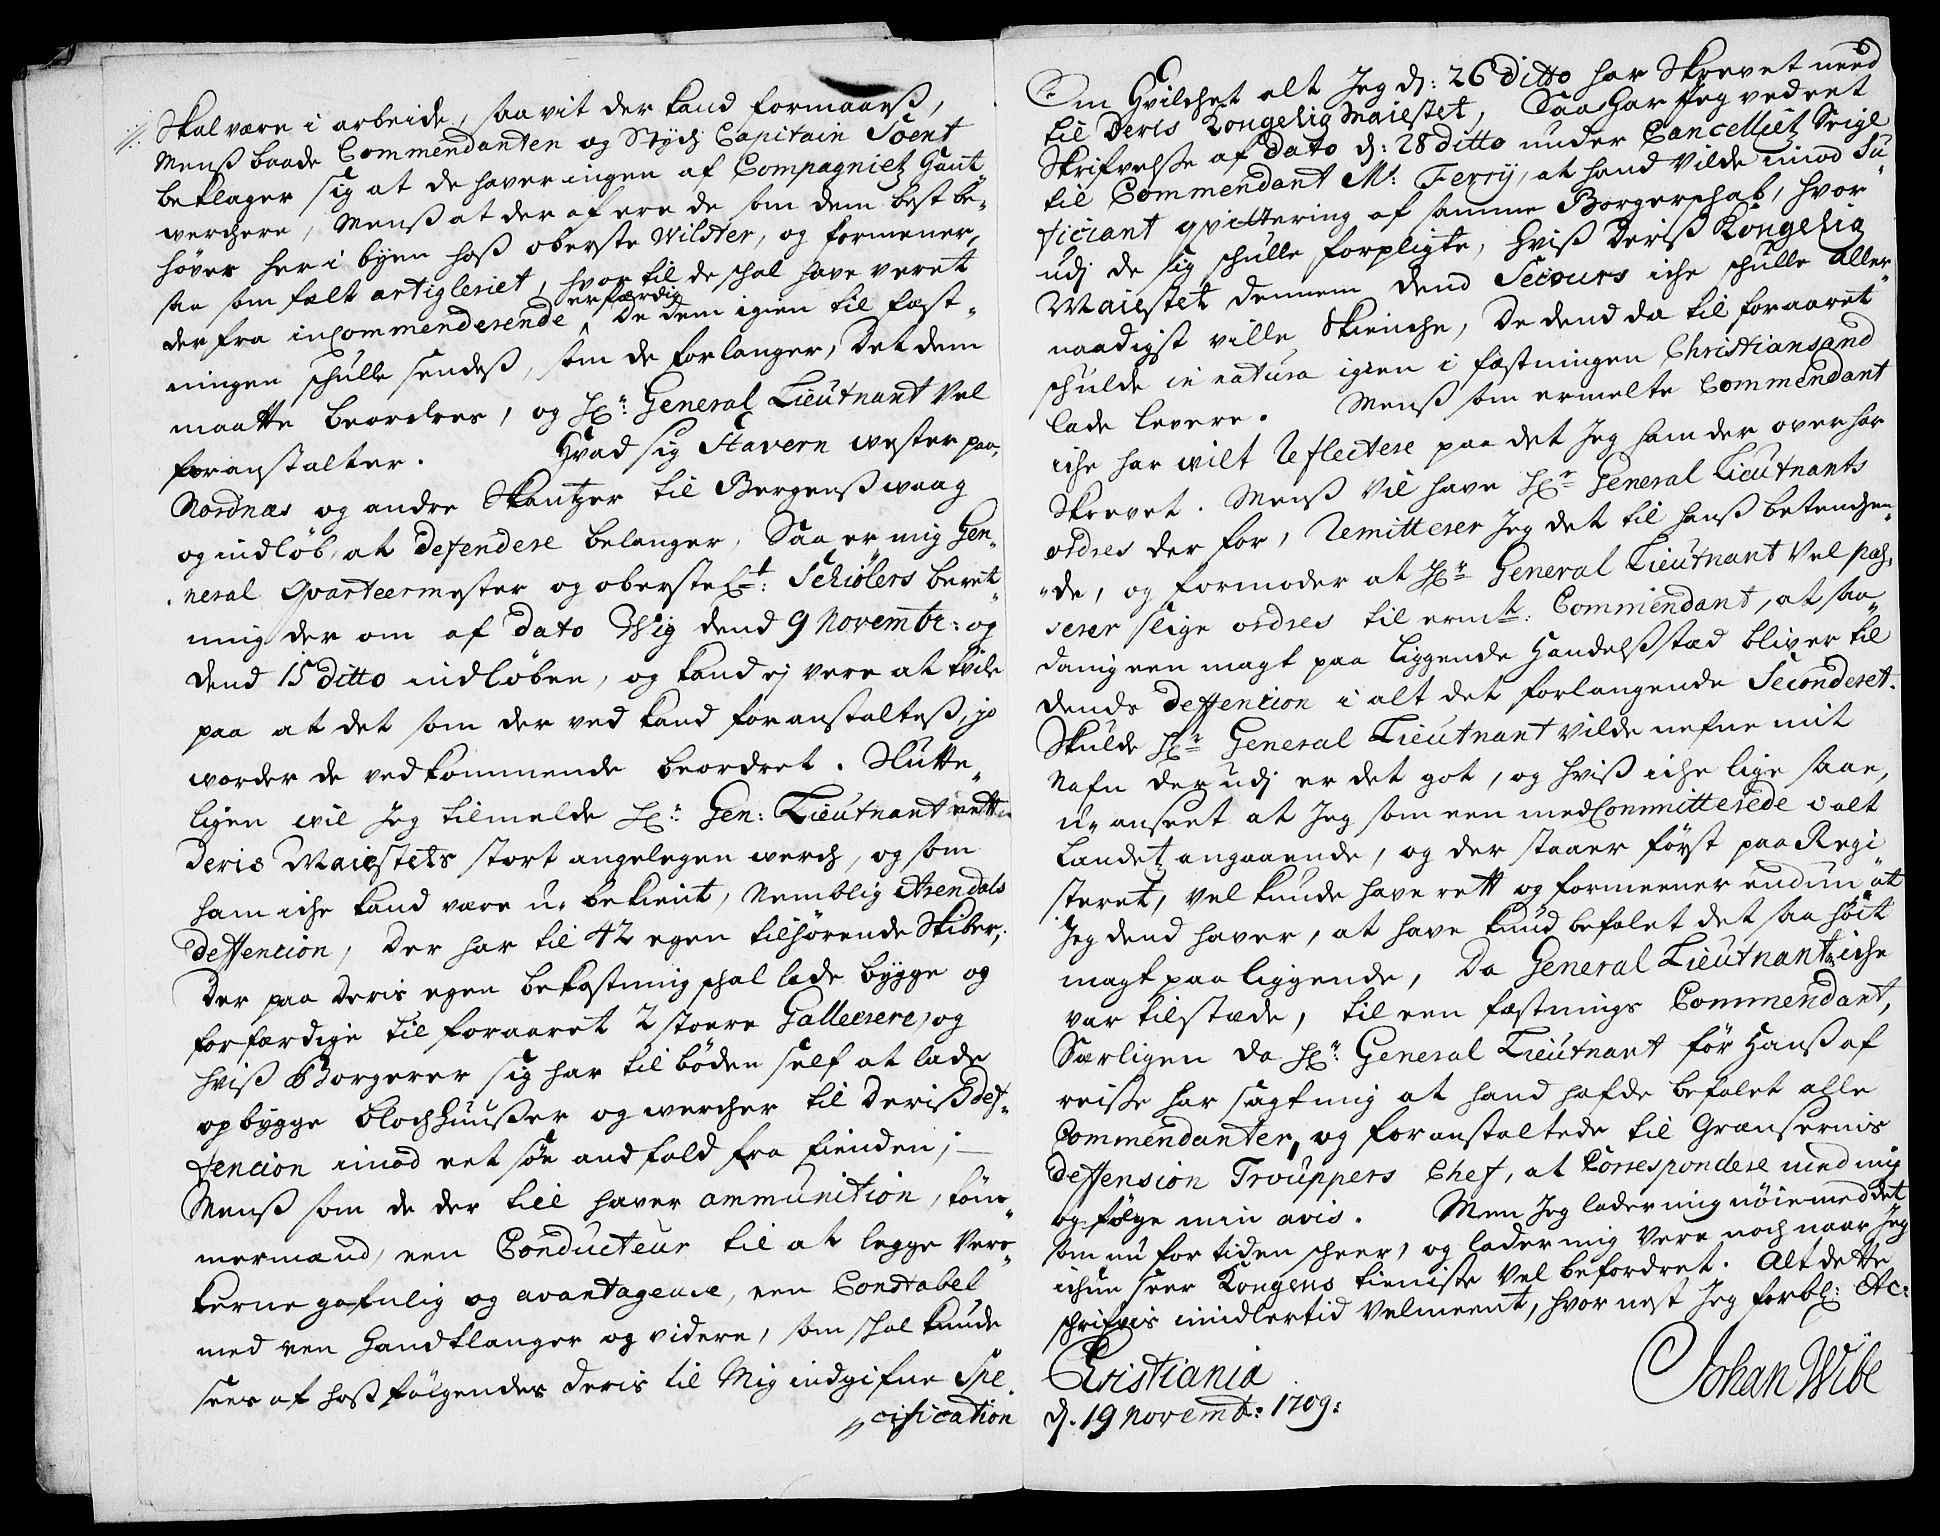 Skal være i arbeide, saa vit der kand formaaes,
Menß baade Commendanten og Stÿch Capitain Soent
beklager sig at de haver ingen af Compagniets Hant
werchere, Menß at der af ere de som dem best be-
høver her i byen hoß oberste Wilster, og formener
saa som fælt artigleriet, hvor til de schal have veret
der fra incommenderende erfærdig, de dem igien til fæst-
ningen schulle sendeß, som de forlanger, det dem
maatte beordres, og Hr: General Lieutnant vel
foranstalter. Hvad sig Stavern wester paa,
Nordnæs og andre Skantzer til Bergenß waag
og indløb, at defendere belanger, Saa er mig Gen-
neral Qvarteermester og oberste Lt: Schiølers beret-
ning der om af dato Wig dend 9 Novembr: og
dend 15 ditto indløben, og kand ej vere at tvile
paa at det som der ved kand foranstalteß, jo
worder de vedkommende beordret. Slutte-
ligen wil Jeg tilmelde Hr: Gen: Lieutnant ett
Deris Maiestets stort angelegen werch, og som
ham iche kand være u-bekient, Nemblig Arendals
Deffencion, der har til 42 egen tilhørende Skiber,
Der paa deris egen bekostning schal lade bygge og
forfærdige til foraaret 2 stoere Galleerere, og
hviß Borgerer sig har til bøden self at lade
op bygge Bloch Huusser og wercher til Deriß def-
fencion imod eet søe andfald fra fienden,
Menß som de der till haver ammunition, tøm-
mermænd, een Conducteur til at legge ver-
kerne gafnlig og avantageuse, een Constabel
med een Handklanger og videre, som schal kunde
sees af hoß følgendes deris til Mig indgifne Spe-
cification
Om Hvilchet alt Jeg d: 26 ditto har Skrevet need
til Deris Kongelig Maiestet, Saa har Jeg vedert
Skrifvelse af Dato d: 28 ditto under Cancelliets Seigl
til Commendant Mr: Ferrÿ, at hand vilde imod Su-
ficiant qvittering af samme Borgerschab, hvor
udj de sig schulle forpligte, hviß Deriß Kongelig
Maiestet dennem dend Secours iche schulle Aller-
naadigst ville Skienche, De dend da til foraaret
schulde in natura igien i fæstningen Christiansand
lade levere. Menß som ermelte Commendant
iche har wilt Reflectere paa det Jeg ham der over har
Skrevet. Menß vil have Hr General Lieutnants
ordres der for, Remitterer Jeg det til hanß betenchen-
de, og formoder at Hr General Lieutnant vel pas-
serer slige ordres til ermt: Commendant, at saa
danig een magt paa liggende Handelßstæd bliver til
dends Deffencion i alt det forlangende Seconderet.
Skulde Hr General Lieutnant vilde nefne mit
Nafn der udj er det got, og hviß iche lige saa,
u-anseet at Jeg som een med Committerede i alt
Landets angaaende, og der staaer først paa Regi
steret, vel kunde have rett og formeener endnu at
Jeg dend haver, at have kund befalet det saa høit
magt paa liggende, da General Lieutnant iche
var tilstæde, til een fæstnings Commendant,
Særligen da Hr: General Lieutnant før Hanß af
reisse har sagt mig at hand hafde befalet alle
Commendanter, og foranstaltede til Grænsernis
Deffension Trouppers Chef, at Correspondere med mig
og følge min avis. Men Jeg lader mig nøie med det
som nu for tiden scheer, og lader mig vere noch naar Jeg
ichun seer Kongens tieniste vel befordret. Alt dette
schrifvis imidlertid velmeent, hvor nest Jeg forbl: etc:
Christiania
d. 19 Novemb: 1709:
Johan Wibe